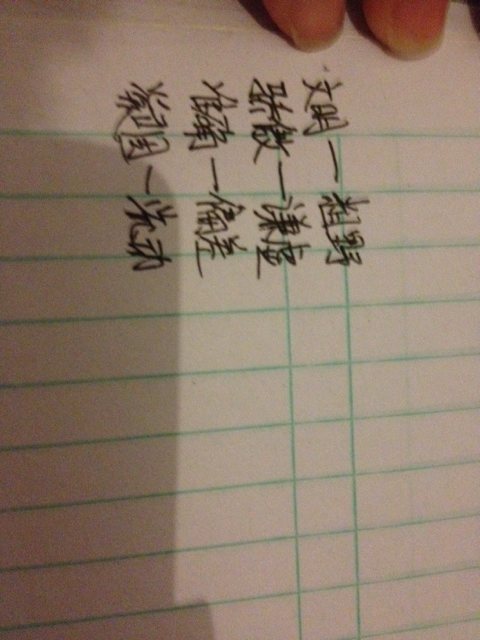 文明—粗野
骄傲—谦虚
准确—偏差
凝固—流动